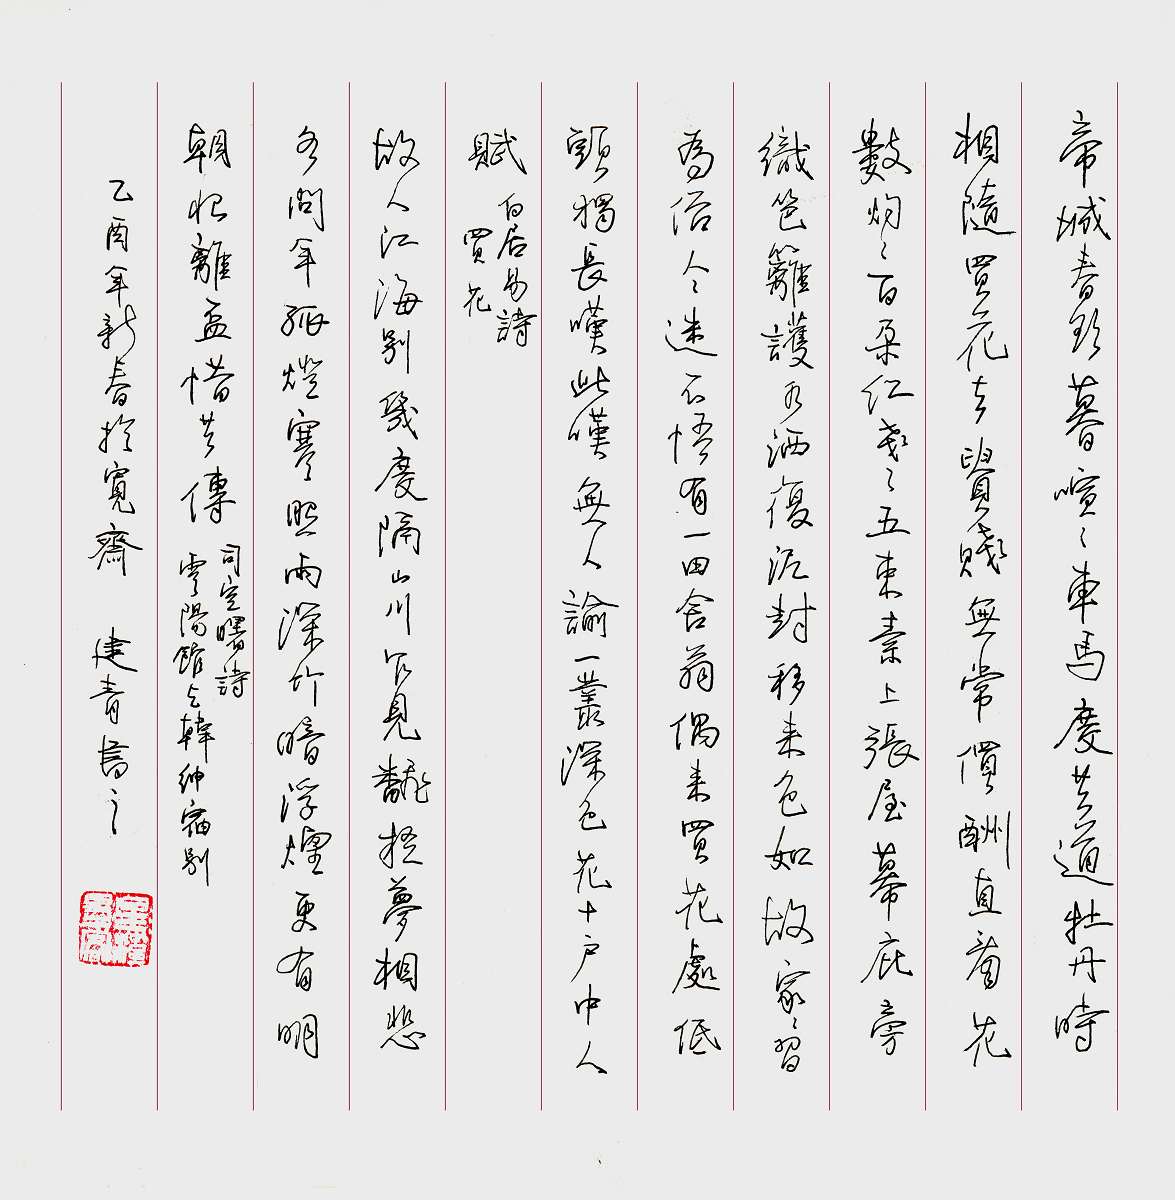 帝城春欲暮喧〻車馬度共道牡丹時
相隨買花去貴賤無常價酬直看花
數灼〻百朵红戔〻五束素上張屋幕庇旁
織笆籬護水洒復泥封移来色如故家〻習
為俗人〻迷不悟有一田舍翁偶来買花處低
頭獨長嘆此嘆無人諭一叢深色花十戶中人
賦
白居易詩
買花
故人江海別幾度隔山川乍見飜疑夢相悲
各問年孤燈寒照雨深竹暗浮煙更有明
朝恨離盃惜共傳
司空曙詩
雲陽館与韓紳宿別
乙酉年新春於寬齋 建青書之